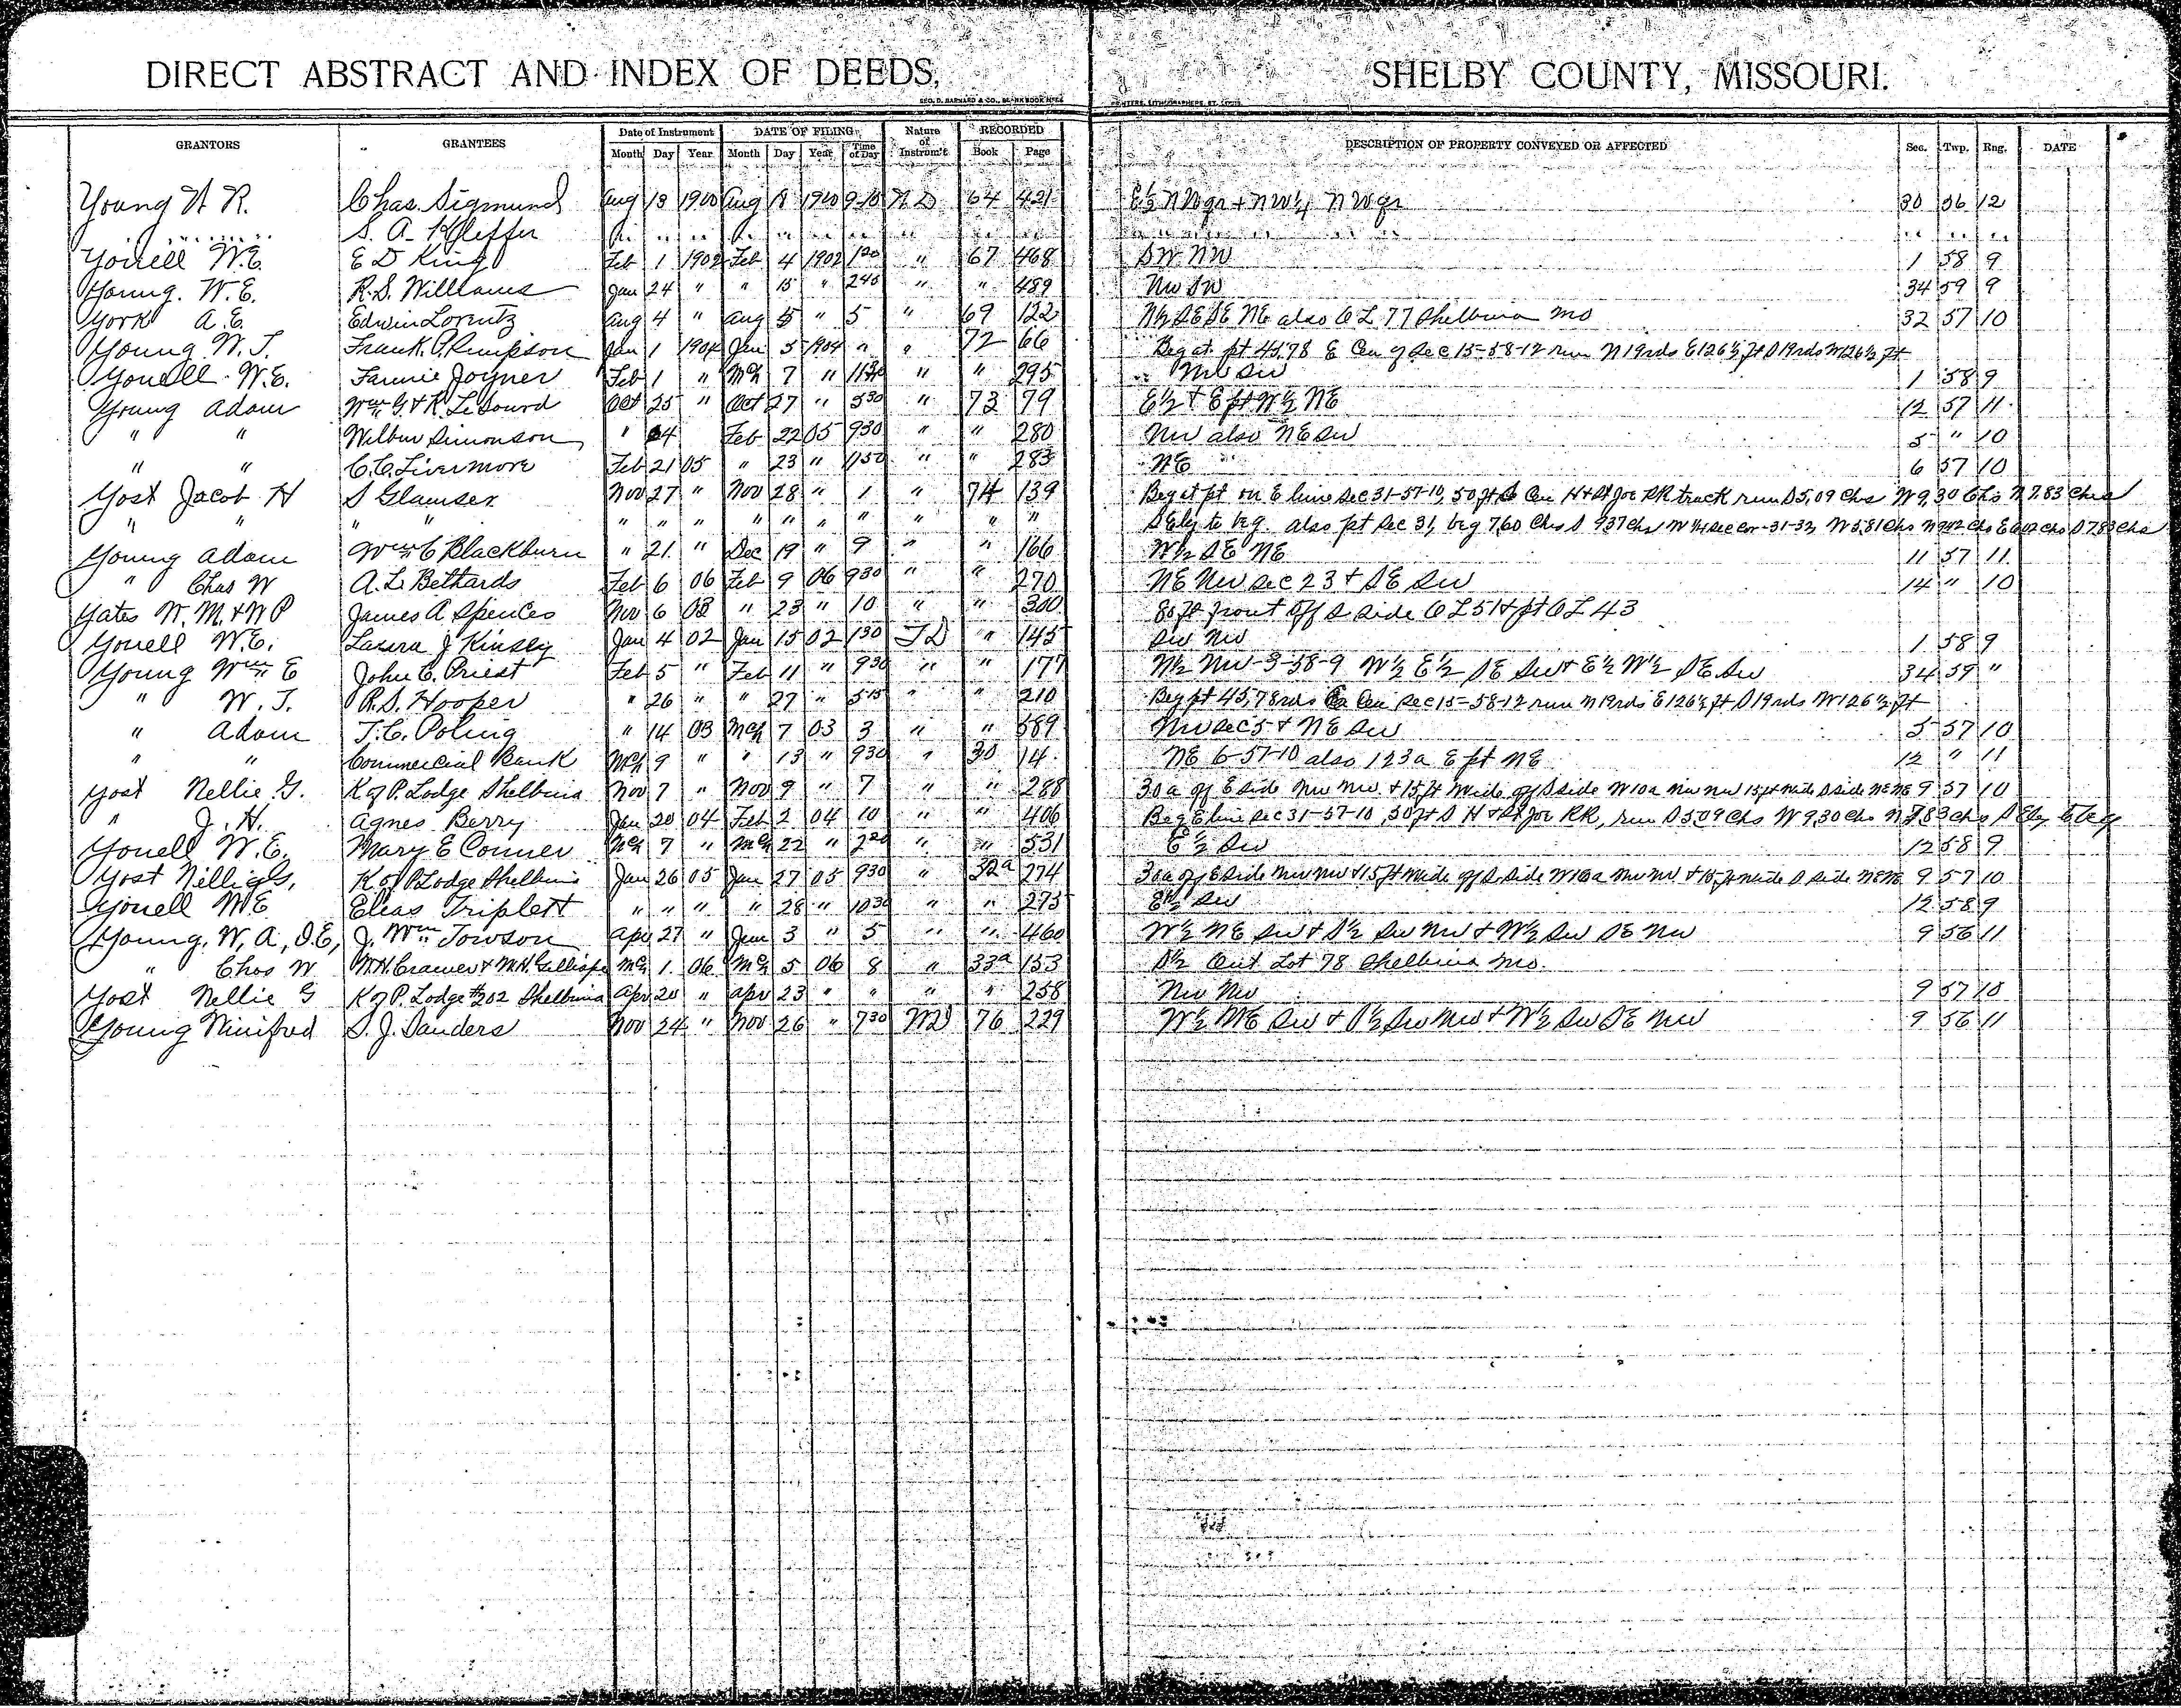 DIRECT ABSTRACT AND INDEX OF DEEDS, SHELBY COUNTY, MISSOURI.
GEO. D. BARNARD & CO., PRINTERS, LITHOGRAPHERS, ST. LOUIS.
GRANTORS GRANTEES Date of Instrument DATE OF FILING Nature of Instrum't RECORDED DESCRIPTION OF PROPERTY CONVEYED OR AFFECTED Sec. Twp. Rng. DATE
Month Day Year Month Day Year Time of Day Book Page
Young H R. Chas. Sigmund Aug 18 1900 Aug 18 1900 9 10 W D 64 421 E½ NW qr + NW¼ NW qr 30 56 12
" " S. A. Kleffer " " " " " " " " " " " " " "
Yoirell W.E. E D King Feb 1 1902 Feb 4 1902 1 20 " 67 468 SW NW 1 58 9
Young. W. E. R. S. Williams Jan 24 " " 15 " 2 45 " " 489 Nw SW 34 59 9
York A. E. Edwin Lorentz Aug 4 " Aug 5 " 5 " 69 122 N½ SE SE NE also O L 77 Shelbina Mo 32 57 10
Young W. T. Frank P. Rimpson Jan 1 1904 Jan 5 1904 " " 72 66 Beg at pt 45.78 E Cen of Sec 15-58-12 run N 19rds E 126½ ft S 19rds W 126½ ft
Yonell W.E. Fannie Joyner Feb 1 " Mch 7 " 11 30 " " 295 Nw Sw 1 58 9
Young Adam Wm G. & R. LeSourd Oct 25 " Oct 27 " 5 30 " 73 79 E½ + E pt W½ NE 12 57 11
" " Wilbur Simonson " 24 Feb 22 05 9 30 " " 280 Nw also NE Sw 5 " 10
" " C. C. Livermore Feb 21 05 " 23 " 11 50 " " 283 NE 6 57 10
Yost Jacob H S Glamser Nov 27 " Nov 28 " 1 " 74 139 Beg at pt on E line Sec 31-57-10, 50 ft S Cen H & St Joe RR track run S 5,09 Chs W 9,30 Chs N 7.83 Chs
" " " " " " " " " " " " " " S Ely to beg. also pt Sec 31, beg 7,60 Chs S 937 Chs W Sec Cor 31-32, W 5,81 Chs N 942 Chs E 602 Chs S 783 Chs
Young Adam Wm C Blackburn " 21 " Dec 19 " 9 " " 166 W½ SE NE 11 57 11
" Chas W A. L. Bethards Feb 6 06 Feb 9 06 9 30 " " 270 NE Nw Sec 23 + SE Sw 14 " 10
Yates W. M. & W P James A Spences Nov 6 03 " 23 " 10 " " 300 80 ft front off S side O L 51 + pt O L 43
Yonell W.E. Laura J Kinsey Jan 4 02 Jan 15 02 1 30 T D " 145 Sw Nw 1 58 9
Young Wm E John C. Priest Feb 5 " Feb 11 " 9 30 " " 177 N½ Nw-3-58-9 W½ E½ SE Sw + E½ W½ SE Sw 34 59 "
" W. T. R. S. Hooper " 26 " " 27 " 5 15 " " 210 Beg pt 45,78rds E Cen Sec 15-58-12 run N 19rds E 126½ ft S 19rds W 126½ ft
" Adam T. C. Poling " 14 03 Mch 7 03 3 " " 589 Nw Sec 5 + NE Sw 5 57 10
" " Commercial Bank Mch 9 " " 13 " 9 30 " 30 14 NE 6-57-10 also 123a E pt NE 12 " 11
Yost Nellie G. K of P. Lodge Shelbina Nov 7 " Nov 9 " 7 " " 288 30 a of E side Nw Nw + 15 ft wide off S side W 10 a Nw Nw 15 ft wide S side NE NE 9 57 10
" J. H. Agnes Berry Jan 20 04 Feb 2 04 10 " " 406 Beg E line Sec 31-57-10, 50 ft S H & St Joe RR, run S 5,09 Chs W 9,30 Chs N 7,83 Chs S Ely to beg
Yonell W.E. Mary E Conner Mch 7 " Mch 22 " 2 20 " " 531 E½ Sw 12 58 9
Yost Nellie G, K of P Lodge Shelbina Jan 26 05 Jan 27 05 9 30 " 32a 274 30 a of E side Nw Nw + 15 ft wide off S. side W 10 a Nw Nw + 15 ft wide S side NE NE 9 57 10
Yonell W E Elias Triplett " " " " 28 " 10 30 " " 275 E½ Sw 12 58 9
Young, W, A, D.E, J. Wm Towson Apr 27 " Jun 3 " 5 " " 460 W½ NE Sw + S½ Sw Nw + W½ Sw SE Nw 9 56 11
" Chas W M. H. Cramer & M. H. Gillispe Mch 1 06 Mch 5 06 8 " 33a 153 S½ Out Lot 78 Shelbina Mo.
Yost Nellie G K of P. Lodge #202 Shelbina Apr 20 " Apr 23 " " " " 258 Nw Nw 9 57 10
Young Winifred S. J. Sanders Nov 24 " Nov 26 " 7 30 WD 76 229 W½ NE Sw + S½ Sw Nw + W½ Sw SE Nw 9 56 11